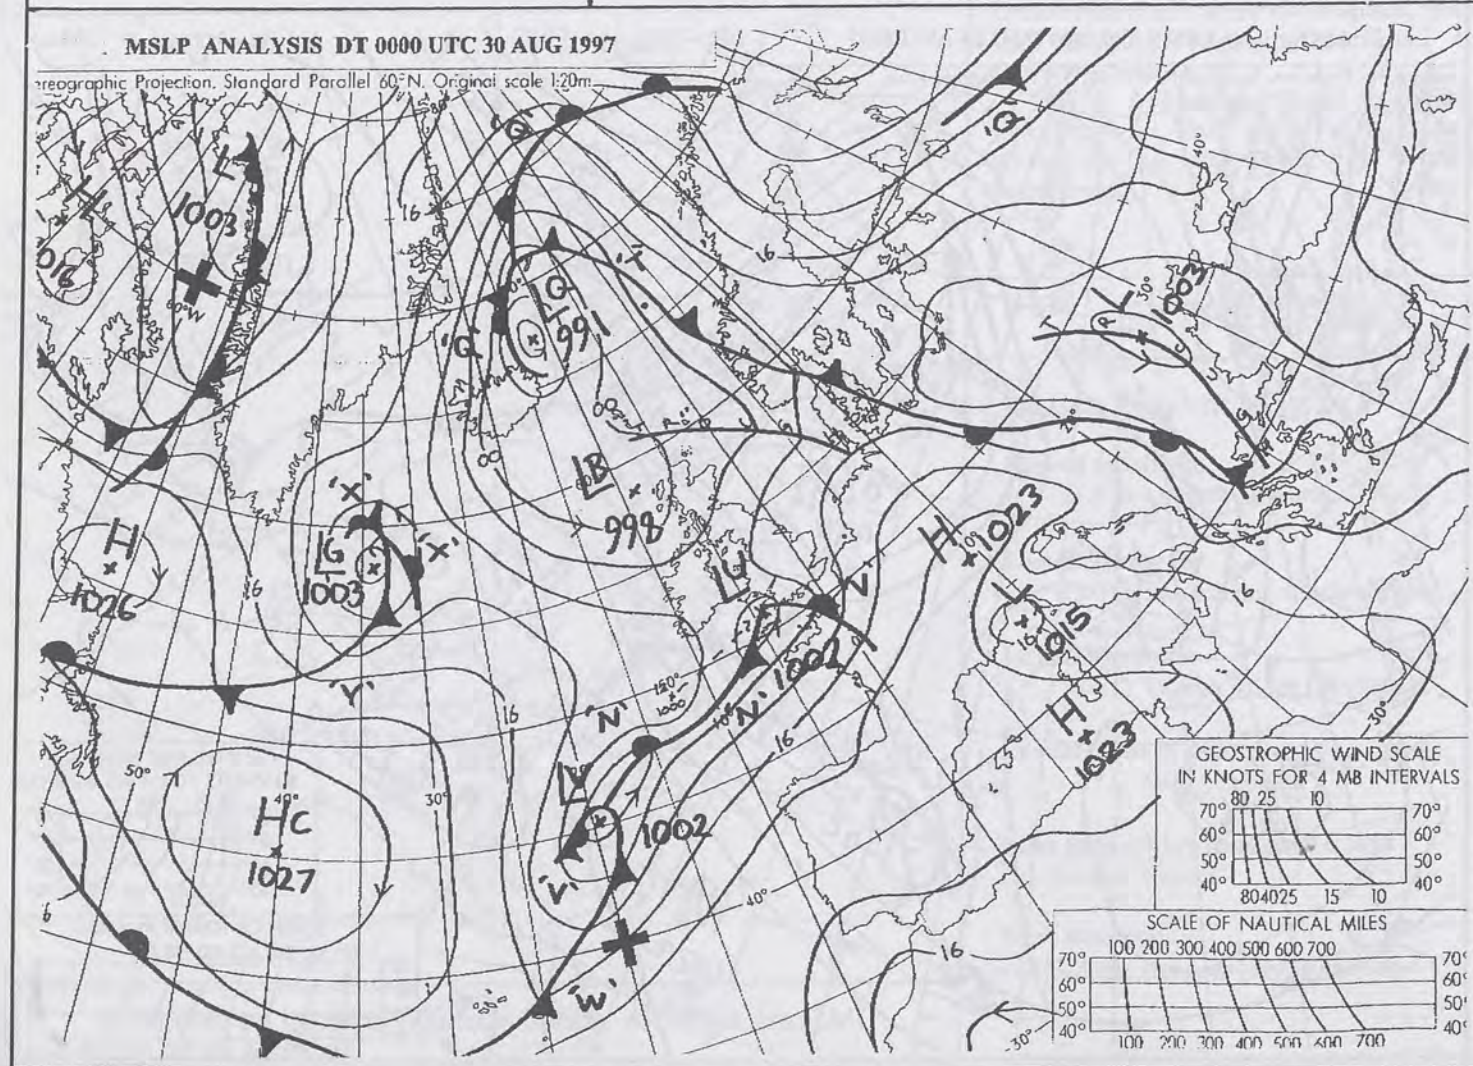 MSLP ANALYSIS DT 0000 UTC 30 AUG 1997
ereographic Projection, Standard Parallel 60°N. Original scale 1:20m.
'Q'
'Q'
L
1003
H
016
60°W
16
'T'
16
40°
L
30°
1003
T
R
LQ
991
'Q'
LB
998
'X'
'X'
LG
1003
H
1026
16
H
1023
L
1015
16
LU
'N'
1002
'Y'
16
'N'
'N'
1000
16
H
1023
30°
50°
40°
HC
1027
30°
LV
1002
'V'
'W'
40°
16
30°
GEOSTROPHIC WIND SCALE
IN KNOTS FOR 4 MB INTERVALS
80 25 10
70° 70°
60° 60°
50° 50°
40° 40°
80 40 25 15 10
SCALE OF NAUTICAL MILES
100 200 300 400 500 600 700
70° 70°
60° 60°
50° 50°
40° 40°
100 200 300 400 500 600 700